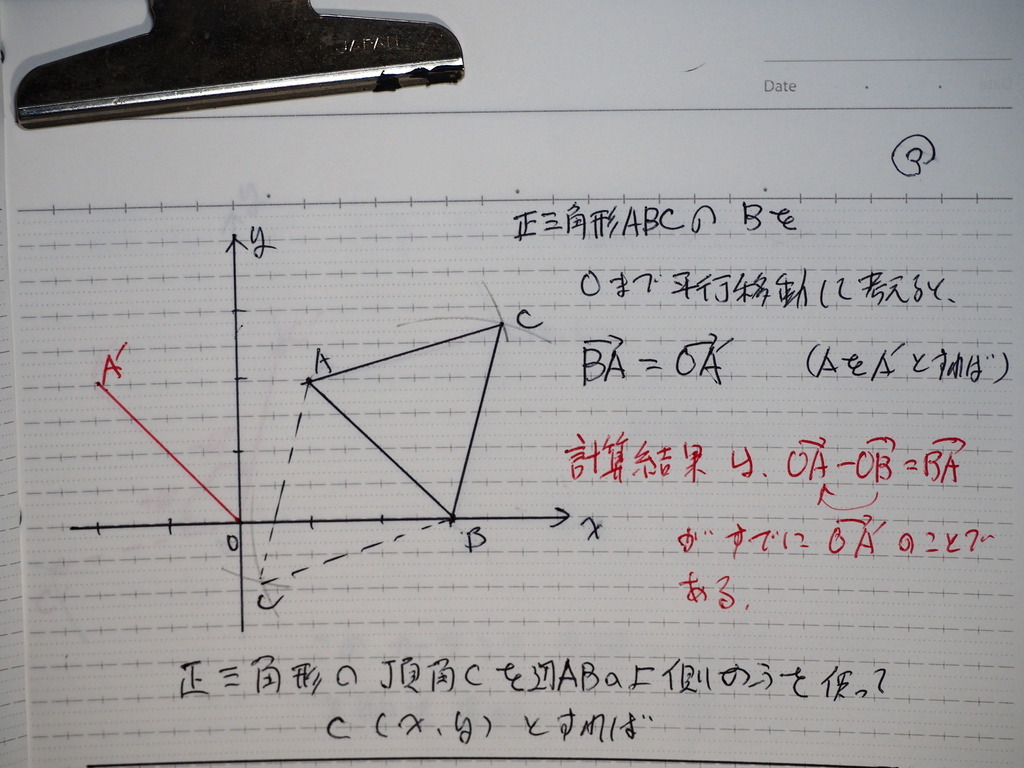 JAPAN
Date
③
正三角形ABCの Bを
Oまで平行移動して考えると、
BA = OA' (AをA'とすれば)
計算結果は、OA - OB = BA
がすでに OA' のことで
ある.
y
A'
A
C
O
B
x
C
正三角形の頂角Cを辺ABの上側のほうを使って
C (x, y) とすれば